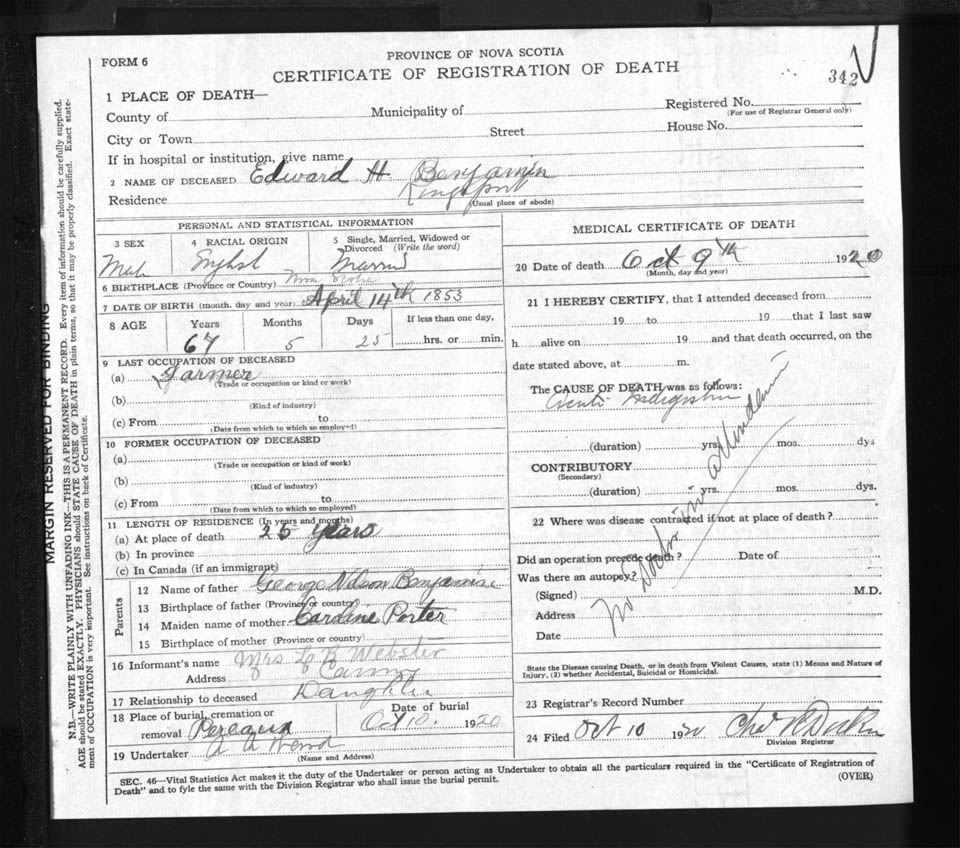 FORM 6
PROVINCE OF NOVA SCOTIA
CERTIFICATE OF REGISTRATION OF DEATH
342
1 PLACE OF DEATH—
County of
Municipality of
Registered No.
(For use of Registrar General only)
City or Town
Street
House No.
If in hospital or institution, give name
2 NAME OF DECEASED Edward H. Benjamin
Residence Kingsport
(Usual place of abode)
PERSONAL AND STATISTICAL INFORMATION
3 SEX
4 RACIAL ORIGIN
5 Single, Married, Widowed or Divorced (Write the word)
6 BIRTHPLACE (Province or Country) Nova Scotia
7 DATE OF BIRTH (month, day and year) April 14th 1853
8 AGE
Years
Months
Days
If less than one day,
67 5 25 hrs. or min.
9 LAST OCCUPATION OF DECEASED
(a) Farmer
(Trade or occupation or kind or work)
(b)
(Kind of industry)
(c) From to
(Date from which to which so employed)
10 FORMER OCCUPATION OF DECEASED
(a)
(Trade or occupation or kind of work)
(b)
(Kind of industry)
(c) From to
(Date from which to which so employed)
11 LENGTH OF RESIDENCE (In years and months)
(a) At place of death 25 years
(b) In province
(c) In Canada (if an immigrant)
Parents
12 Name of father George Nelson Benjamin
13 Birthplace of father (Province or country)
14 Maiden name of mother Porter
15 Birthplace of mother (Province or country)
16 Informant's name Mrs Webster
Address
17 Relationship to deceased Daughter
18 Place of burial, cremation or removal
Date of burial
Oct 10. 1920
19 Undertaker
(Name and Address)
MEDICAL CERTIFICATE OF DEATH
20 Date of death Oct 9th 1920
(Month, day and year)
21 I HEREBY CERTIFY, that I attended deceased from
19 to 19 that I last saw
h alive on 19 and that death occurred, on the
date stated above, at m.
The CAUSE OF DEATH was as follows:
Indigestion
(duration) yrs. mos. dys
CONTRIBUTORY
(Secondary)
(duration) yrs. mos. dys.
22 Where was disease contracted if not at place of death?
Did an operation precede death? Date of
Was there an autopsy?
(Signed) M.D.
Address
Date
No Doctor in attendance
State the Disease causing Death, or in death from Violent Causes, state (1) Means and Nature of
Injury, (2) whether Accidental, Suicidal or Homicidal.
23 Registrar's Record Number
24 Filed Oct 10 1920
Division Registrar
SEC. 46—Vital Statistics Act makes it the duty of the Undertaker or person acting as Undertaker to obtain all the particulars required in the "Certificate of Registration of
Death" and to fyle the same with the Division Registrar who shall issue the burial permit.
(OVER)
MARGIN RESERVED FOR BINDING
N.B.—WRITE PLAINLY WITH UNFADING INK—THIS IS A PERMANENT RECORD. Every item of information should be carefully supplied.
AGE should be stated EXACTLY. PHYSICIANS should STATE CAUSE OF DEATH in plain terms, so that it may be properly classified. Exact state-
ment of OCCUPATION is very important. See instructions on back of Certificate.